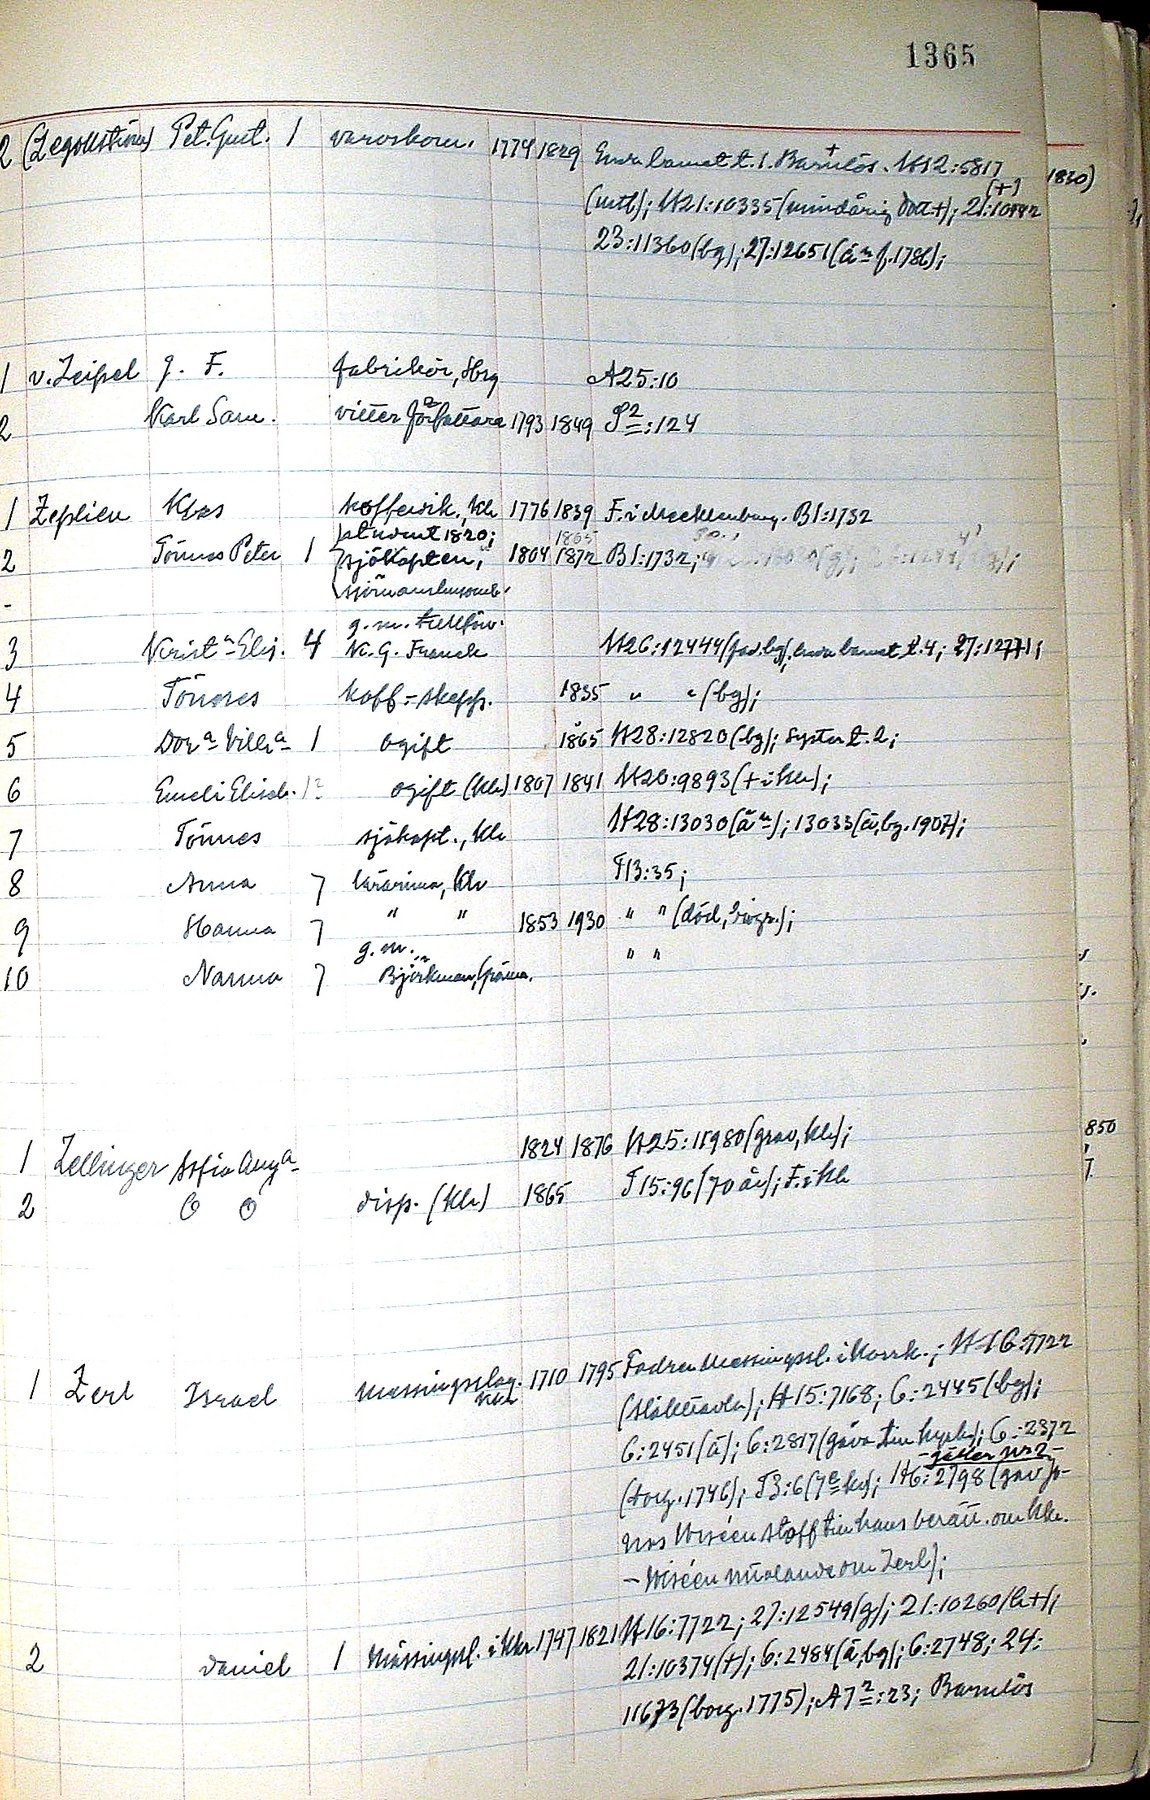 1365
2 Pet. Gust. 1 varvskom. 1774 1829 Enda barnet t. 1. Barnlös. H12:5817
(utl); H21:10335 (mindårig dott +); 21:10442 (+)
23:11360 (bg); 27:12651 (än f. 1786);
1830)
1 v. Zeipel g. F. fabrikör, Sbg A25:10
2 Karl Sam. vitter författare 1793 1849 S2:124
1 Zeplien Klas koffervik., Klr 1776 1839 F. i Mecklenburg. B1:1732
student 1820; 1865
2 Tönnes Peter 1 sjökapten, 1804 1872 B1:1732;
g. m. tullförv.
3 Krist:a Elis. 4 K. G. Franck H26:12444 (fad. bg). Enda barnet t. 4; 27:12771;
4 Tönnes koff.-skepp. 1835 " " (bg);
5 Dor:a Vill:a 1 ogift 1865 H28:12820 (bg); Syster t. 2;
6 Emeli Elisab. 1? ogift (Klr) 1807 1841 H20:9893 (+ i Klr);
7 Tönnes sjökapt., Klr H28:13030 (än); 13033 (ä, bg. 1907);
8 Anna 7 lärarinna, Klr T13:35;
9 Hanna 7 " " 1853 1930 " " (död, biogr.);
g. m. " "
10 Nanna 7 Björkman,
850
1 Zellinger Sofia Aug:a 1824 1876 H25:11980 (grav, Klr);
2 O O disp. (Klr) 1865 T15:96 (70 år); F. i Klr
1 Zerl Israel Messingsslag. 1710 1795 Fadren Messingssl. i Norrk.; H16:7722
(släkttavla); H15:7168; 6:2445 (bg);
6:2451 (ä); 6:2817 (gåva till kyrka); 6:2372
- gäller nr 2 -
(borg. 1746); T3:6 (7e kg); H6:2798 (gav Jo-
nas Wiséen stoff till hans berätt. om Klr.
- Wiséen om Zerl);
2 Daniel 1 Mässingssl. i Klr 1747 1821 H16:7722; 27:12549 (g); 21:10260 (h+);
21:10374 (+); 6:2484 (ä, bg); 6:2748; 24:
11673 (borg. 1775); A72:23; Barnlös